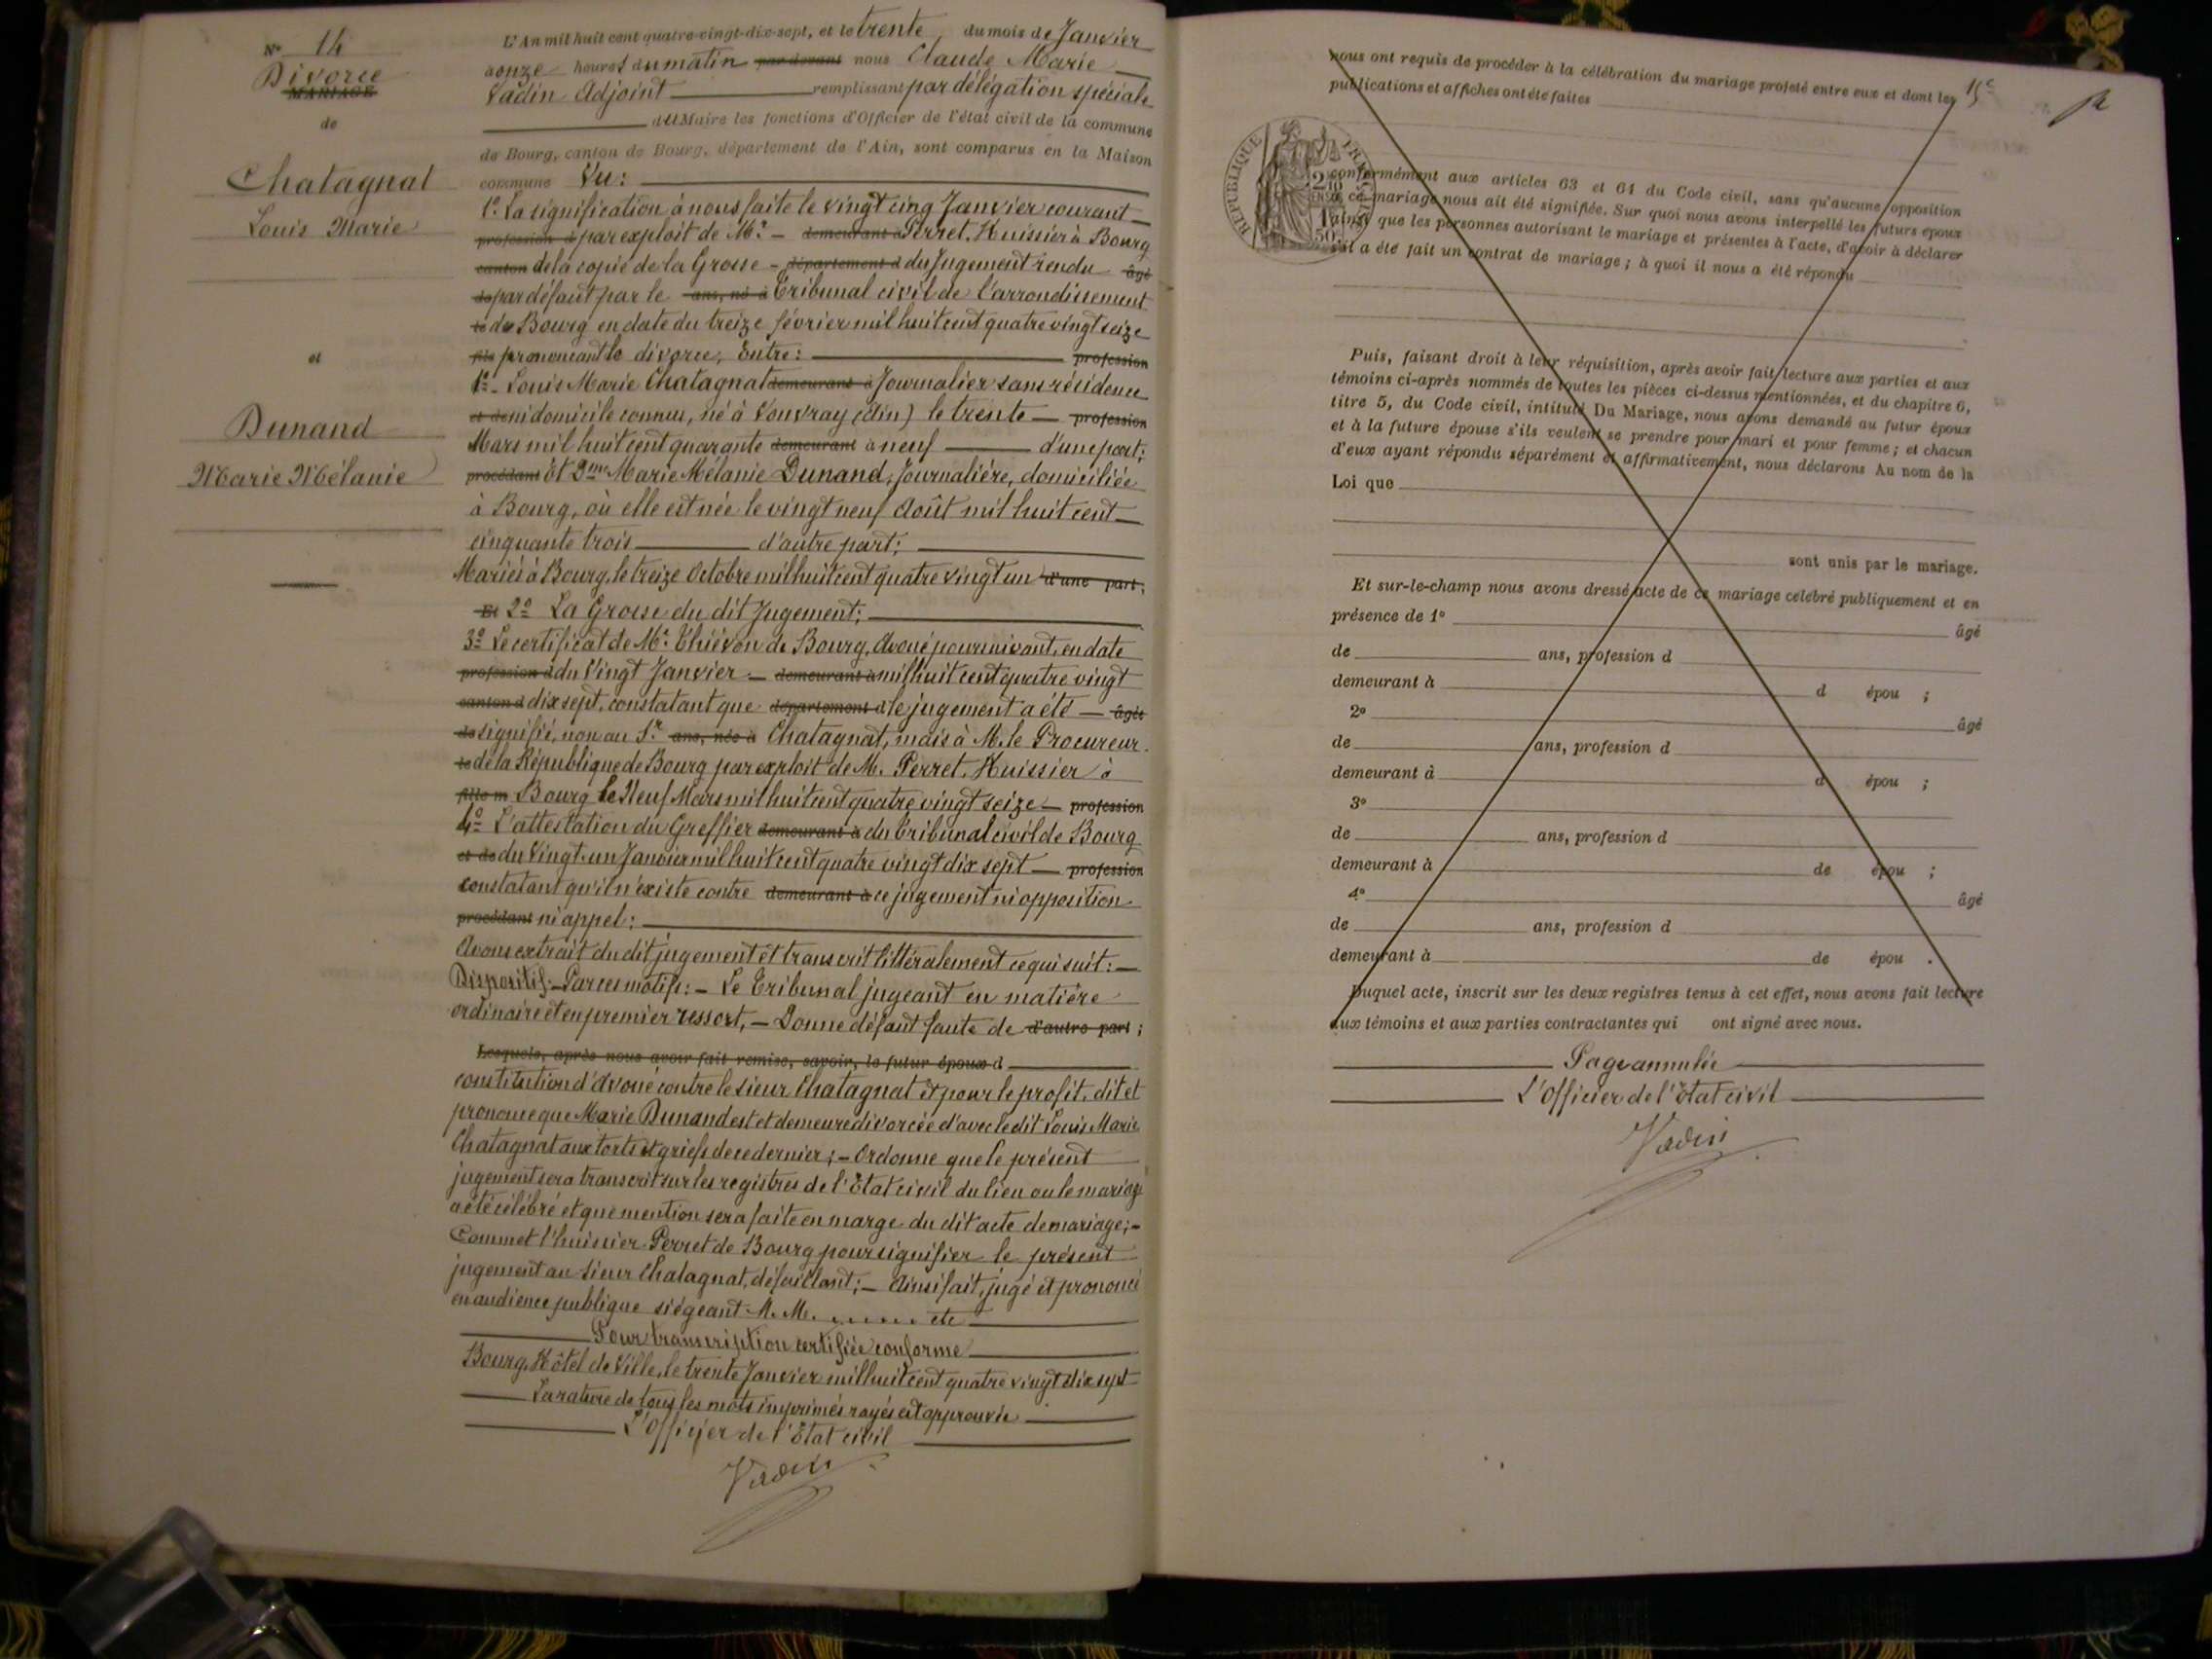 N° 14
Divorce
MARIAGE
de
Chatagnat
Louis Marie
et
Dunand
Marie Mélanie
L'An mil huit cent quatre-vingt-dix-sept, et le trente du mois de Janvier
à onze heures du matin par devant nous Claude Marie
Vadin Adjoint remplissant par délégation spéciale
du Maire les fonctions d'Officier de l'état civil de la commune
de Bourg, canton de Bourg, département de l'Ain, sont comparus en la Maison
commune Vu :
1° La signification à nous faite le vingt cinq Janvier courant
profession d par exploit de Me - demeurant à Perret, Huissier à Bourg
canton de la copie de la Grosse - département d du Jugement rendu âgé
de par défaut par le ans, né à Tribunal civil de l'arrondissement
le de Bourg en date du treize février mil huit cent quatre vingt seize
fils prononcant le divorce, Entre : profession
1° - Louis Marie Chatagnat demeurant à Journalier sans résidence
et de ni domicile connus, né à Vouvray (Ain) le trente profession
Mars mil huit cent quarante demeurant à neuf d'une part ;
procédant Et 2me Marie Mélanie Dunand, Journalière, domiciliée
à Bourg, où elle est née le vingt neuf Août mil huit cent
cinquante trois d'autre part ;
Mariés à Bourg, le treize Octobre mil huit cent quatre vingt un d'une part ;
Et 2° La Grosse du dit Jugement ;
3° Le certificat de Me Thiévon de Bourg, Avoué poursuivant, en date
profession d du Vingt Janvier - demeurant à mil huit cent quatre vingt
canton d dix sept, constatant que département d le jugement a été - âgée
de signifié, non au Sr ans, née à Chatagnat, mais à M. le Procureur
le de la République de Bourg par exploit de M. Perret, Huissier à
fille m Bourg le Neuf Mars mil huit cent quatre vingt seize - profession
4° L'attestation du Greffier demeurant à du Tribunal civil de Bourg
et de du Vingt-un Janvier mil huit cent quatre vingt dix sept - profession
constatant qu'il n'existe contre demeurant à ce jugement ni opposition
procédant ni appel :
Avons extrait du dit jugement et transcrit littéralement ce qui suit : -
Dispositif : - Par ces motifs : - Le Tribunal jugeant en matière
ordinaire et en premier ressort, - Donne défaut faute de d'autre part ;
Lesquels, après nous avoir fait remise, savoir, le futur époux d
constitution d'Avoué contre le sieur Chatagnat et pour le profit, dit et
prononce que Marie Dunand est et demeure divorcée d'avec le dit Louis Marie
Chatagnat aux torts et griefs de ce dernier ; - Ordonne que le présent
jugement sera transcrit sur les registres de l'Etat civil du lieu ou le mariage
a été célébré et que mention sera faite en marge du dit acte de mariage ; -
Commet l'huissier Perret de Bourg pour signifier le présent
jugement au sieur Chatagnat, défaillant ; - Ainsi fait, jugé et prononcé
en audience publique siégeant M. M. ...... etc
Pour transcription certifiée conforme
Bourg, Hôtel de Ville, le trente Janvier mil huit cent quatre vingt dix sept
La rature de tous les mots imprimés rayés est approuvée
L'Officier de l'Etat civil
Vadin
nous ont requis de procéder à la célébration du mariage projeté entre eux et dont les
publications et affiches ont été faites
15e
RÉPUBLIQUE FRANÇAISE
conformément aux articles 63 et 64 du Code civil, sans qu'aucune opposition
à ce mariage nous ait été signifiée. Sur quoi nous avons interpellé les futurs époux
ainsi que les personnes autorisant le mariage et présentes à l'acte, d'avoir à déclarer
s'il a été fait un contrat de mariage ; à quoi il nous a été répondu
Puis, faisant droit à leur réquisition, après avoir fait lecture aux parties et aux
témoins ci-après nommés de toutes les pièces ci-dessus mentionnées, et du chapitre 6,
titre 5, du Code civil, intitulé Du Mariage, nous avons demandé au futur époux
et à la future épouse s'ils veulent se prendre pour mari et pour femme ; et chacun
d'eux ayant répondu séparément et affirmativement, nous déclarons Au nom de la
Loi que
sont unis par le mariage.
Et sur-le-champ nous avons dressé acte de ce mariage célébré publiquement et en
présence de 1° âgé
de ans, profession d
demeurant à d épou ;
2° âgé
de ans, profession d
demeurant à d épou ;
3°
de ans, profession d
demeurant à de épou ;
4° âgé
de ans, profession d
demeurant à de épou .
Duquel acte, inscrit sur les deux registres tenus à cet effet, nous avons fait lecture
aux témoins et aux parties contractantes qui ont signé avec nous.
Page annulée
L'Officier de l'Etat civil
Vadin